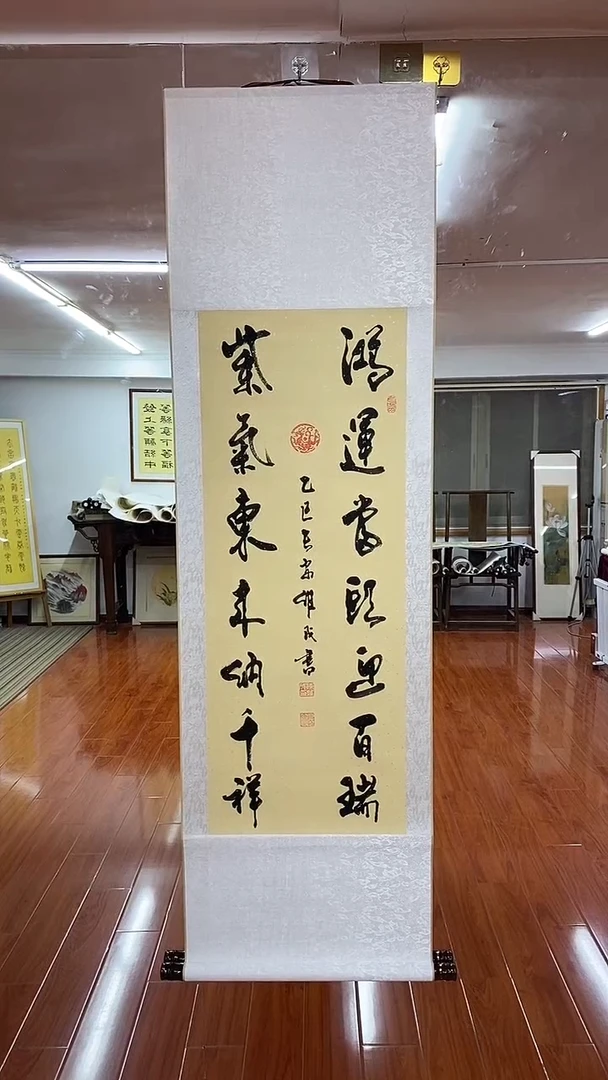 鴻運當頭迎百瑞
紫氣東來納千祥
乙巳
書